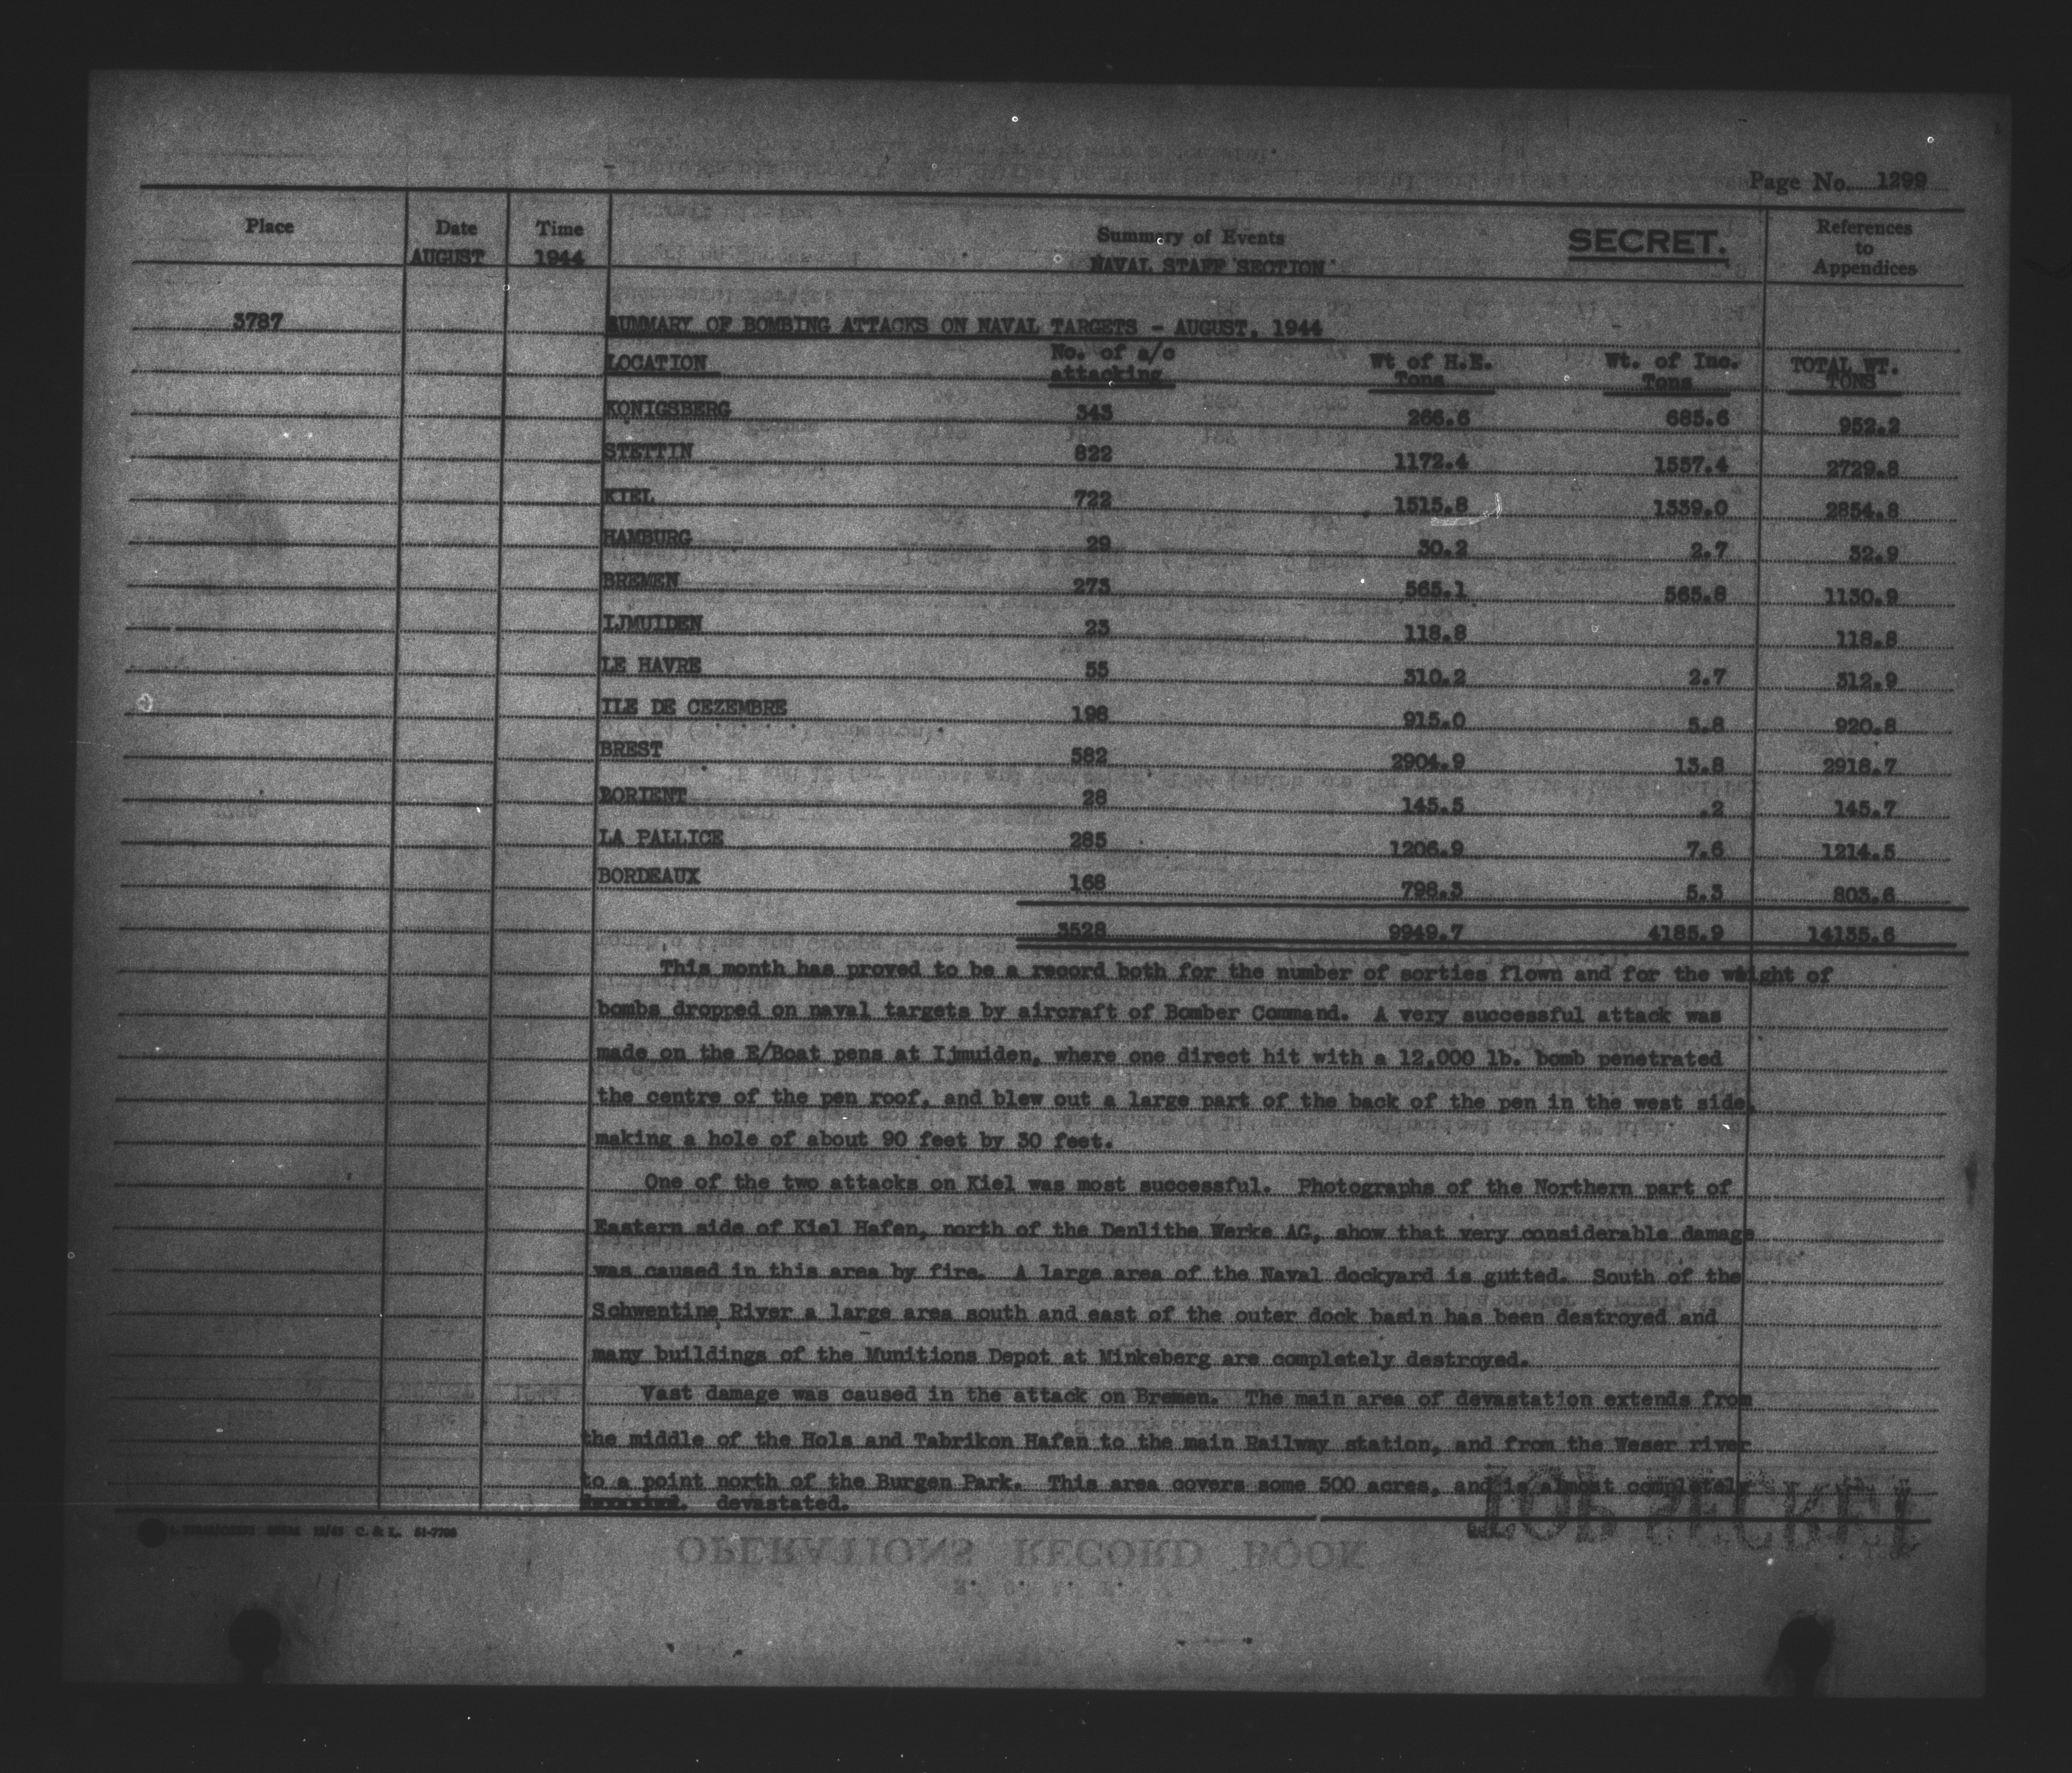 Page No. 1299
Place Date Time Summary of Events SECRET. References to Appendices
AUGUST 1944 NAVAL STAFF SECTION
3787 SUMMARY OF BOMBING ATTACKS ON NAVAL TARGETS - AUGUST, 1944
LOCATION No. of a/c attacking Wt of H.E. Tons Wt. of Inc. Tons TOTAL WT. TONS
KONIGSBERG 343 266.6 685.6 952.2
STETTIN 822 1172.4 1557.4 2729.8
KIEL 722 1515.8 1339.0 2854.8
HAMBURG 29 30.2 2.7 32.9
BREMEN 273 565.1 565.8 1130.9
IJMUIDEN 23 118.8 118.8
LE HAVRE 55 310.2 2.7 312.9
ILE DE CEZEMBRE 198 915.0 5.8 920.8
BREST 582 2904.9 13.8 2918.7
LORIENT 28 145.5 .2 145.7
LA PALLICE 285 1206.9 7.6 1214.5
BORDEAUX 168 798.3 5.3 803.6
3528 9949.7 4185.9 14135.6
This month has proved to be a record both for the number of sorties flown and for the weight of
bombs dropped on naval targets by aircraft of Bomber Command. A very successful attack was
made on the E/Boat pens at Ijmuiden, where one direct hit with a 12,000 lb. bomb penetrated
the centre of the pen roof, and blew out a large part of the back of the pen in the west side,
making a hole of about 90 feet by 30 feet.
One of the two attacks on Kiel was most successful. Photographs of the Northern part of
Eastern side of Kiel Hafen, north of the Denlithe Werke AG, show that very considerable damage
was caused in this area by fire. A large area of the Naval dockyard is gutted. South of the
Schwentine River a large area south and east of the outer dock basin has been destroyed and
many buildings of the Munitions Depot at Minkeberg are completely destroyed.
Vast damage was caused in the attack on Bremen. The main area of devastation extends from
the middle of the Hols and Tabrikon Hafen to the main Railway station, and from the Weser river
to a point north of the Burgen Park. This area covers some 500 acres, and is almost completely
devastated.
C. & L. 51-7706
TOP SECRET
OPERATIONS RECORD BOOK